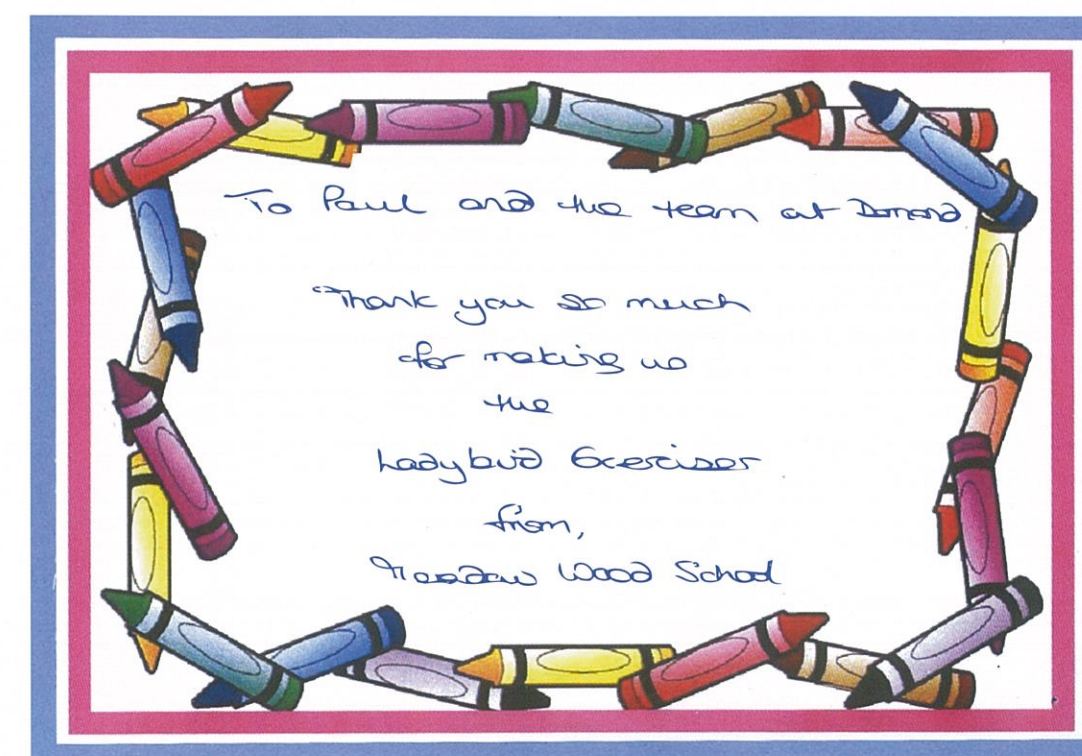 To Paul and the team at Demand
Thank you so much
for making us
the
Ladybird Exerciser
from,
Meadow Wood School